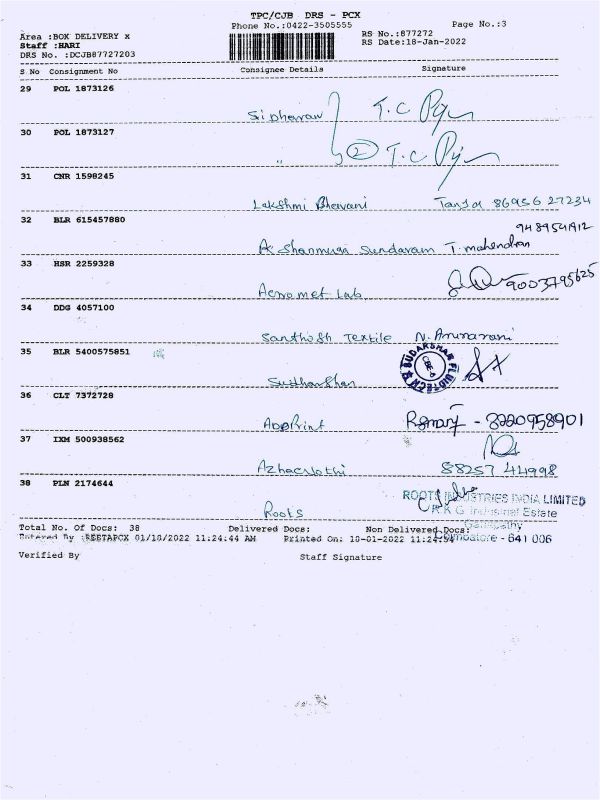 TPC/CJB DRS - PCX
Phone No.:0422-3505555
Page No.:3
Area :BOX DELIVERY x
RS No.:877272
Staff :HARI
RS Date:18-Jan-2022
DRS No. :DCJB87727203
S No Consignment No Consignee Details Signature
29 POL 1873126
T.C
30 POL 1873127
" 2 T.C
31 CNR 1598245
Lakshmi Bhavani 86956 27234
32 BLR 615457880
Shanmuga Sundaram T. mahendran
33 HSR 2259328
Acromet Lab 9003795625
34 DDG 4057100
Santhosh Textile
35 BLR 5400575851
SUDARSHAN FLUIDTECH
CBE-6
Sudharshan
36 CLT 7372728
- 8220958901
37 IXM 500938562
88257 44998
38 PLN 2174644
ROOTS INDUSTRIES INDIA LIMITED
R K G Industrial Estate
Roots
Ganapathy
Coimbatore - 641 006
Total No. Of Docs: 38 Delivered Docs: Non Delivered Docs:
Entered By :REETAPCX 01/18/2022 11:24:44 AM Printed On: 18-01-2022 11:24:54
Verified By Staff Signature